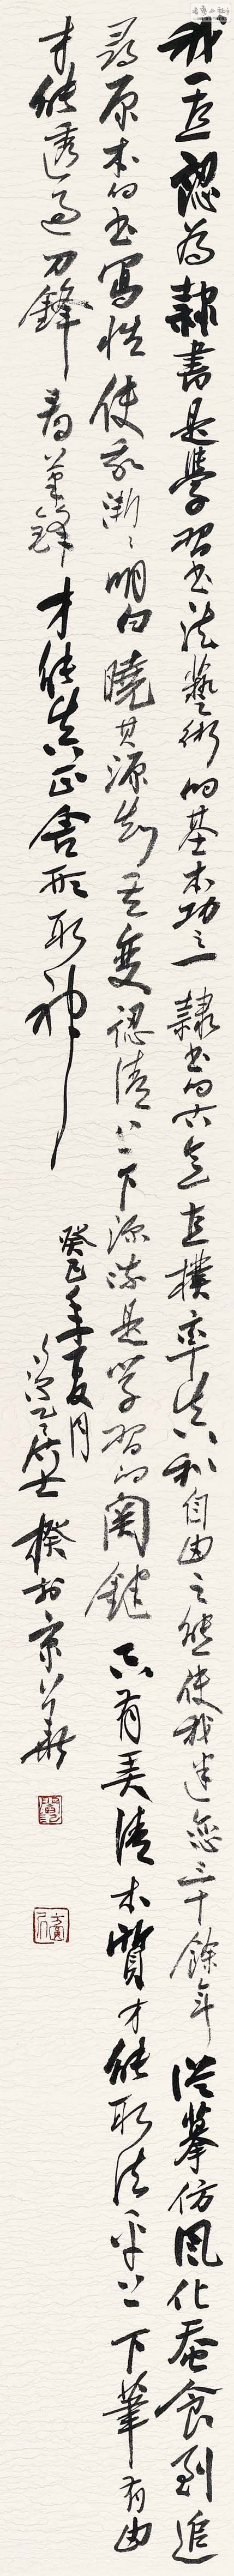 我一直認為隸書是學習书法藝術的基本功之一隸书的古意直樸率真和自由之態使我迷戀三十餘年從摹仿風化蚕食到追
尋原本的书寫性使我漸漸明白曉其源知其變認清上下源流是学習的関鍵只有弄清本質才能取法乎上下筆有由
才能透过刀鋒看筆鋒才能真正舍形取神
癸巳年夏月
居士揆於京華